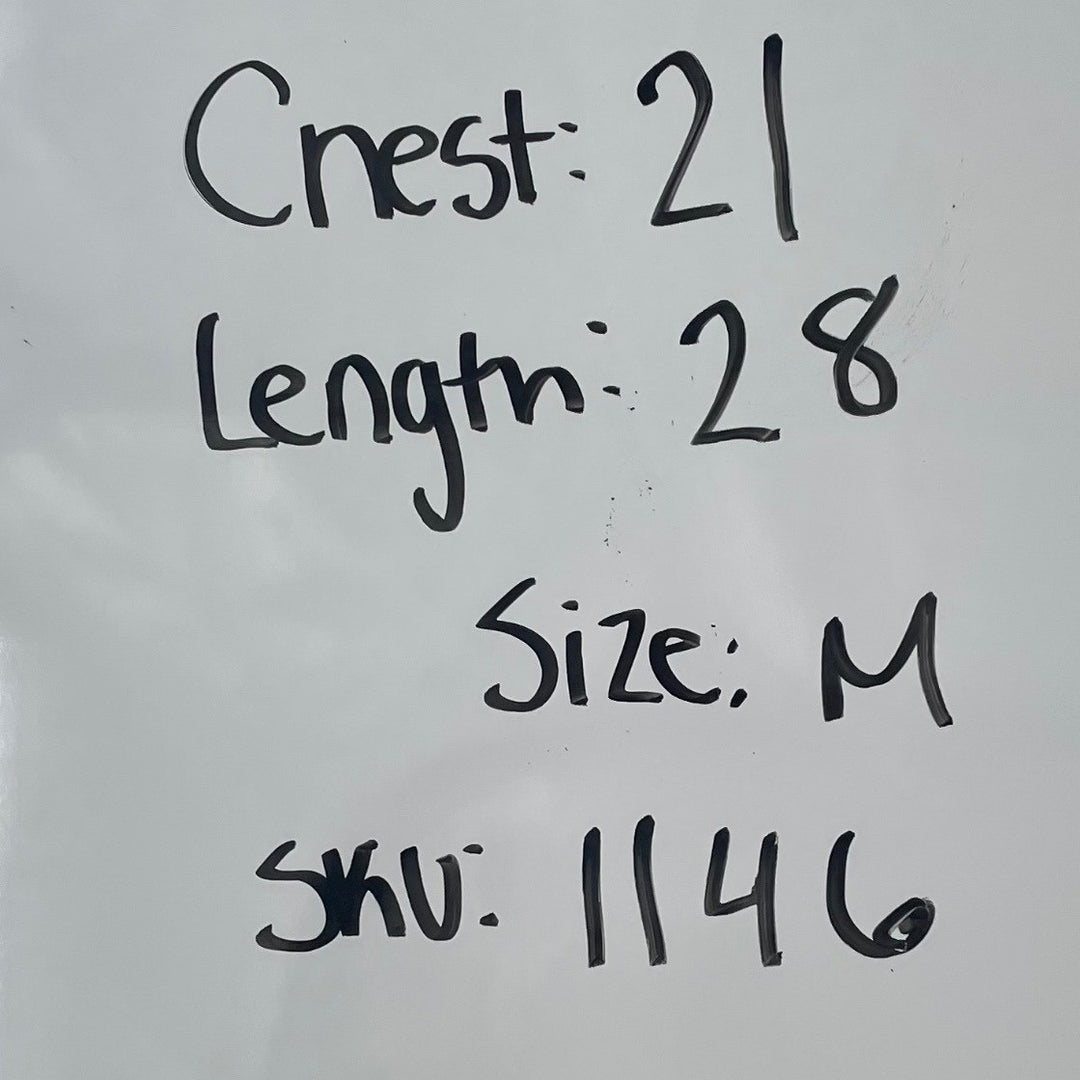 Chest: 21
Length: 28
Size: M
SKU: 1146